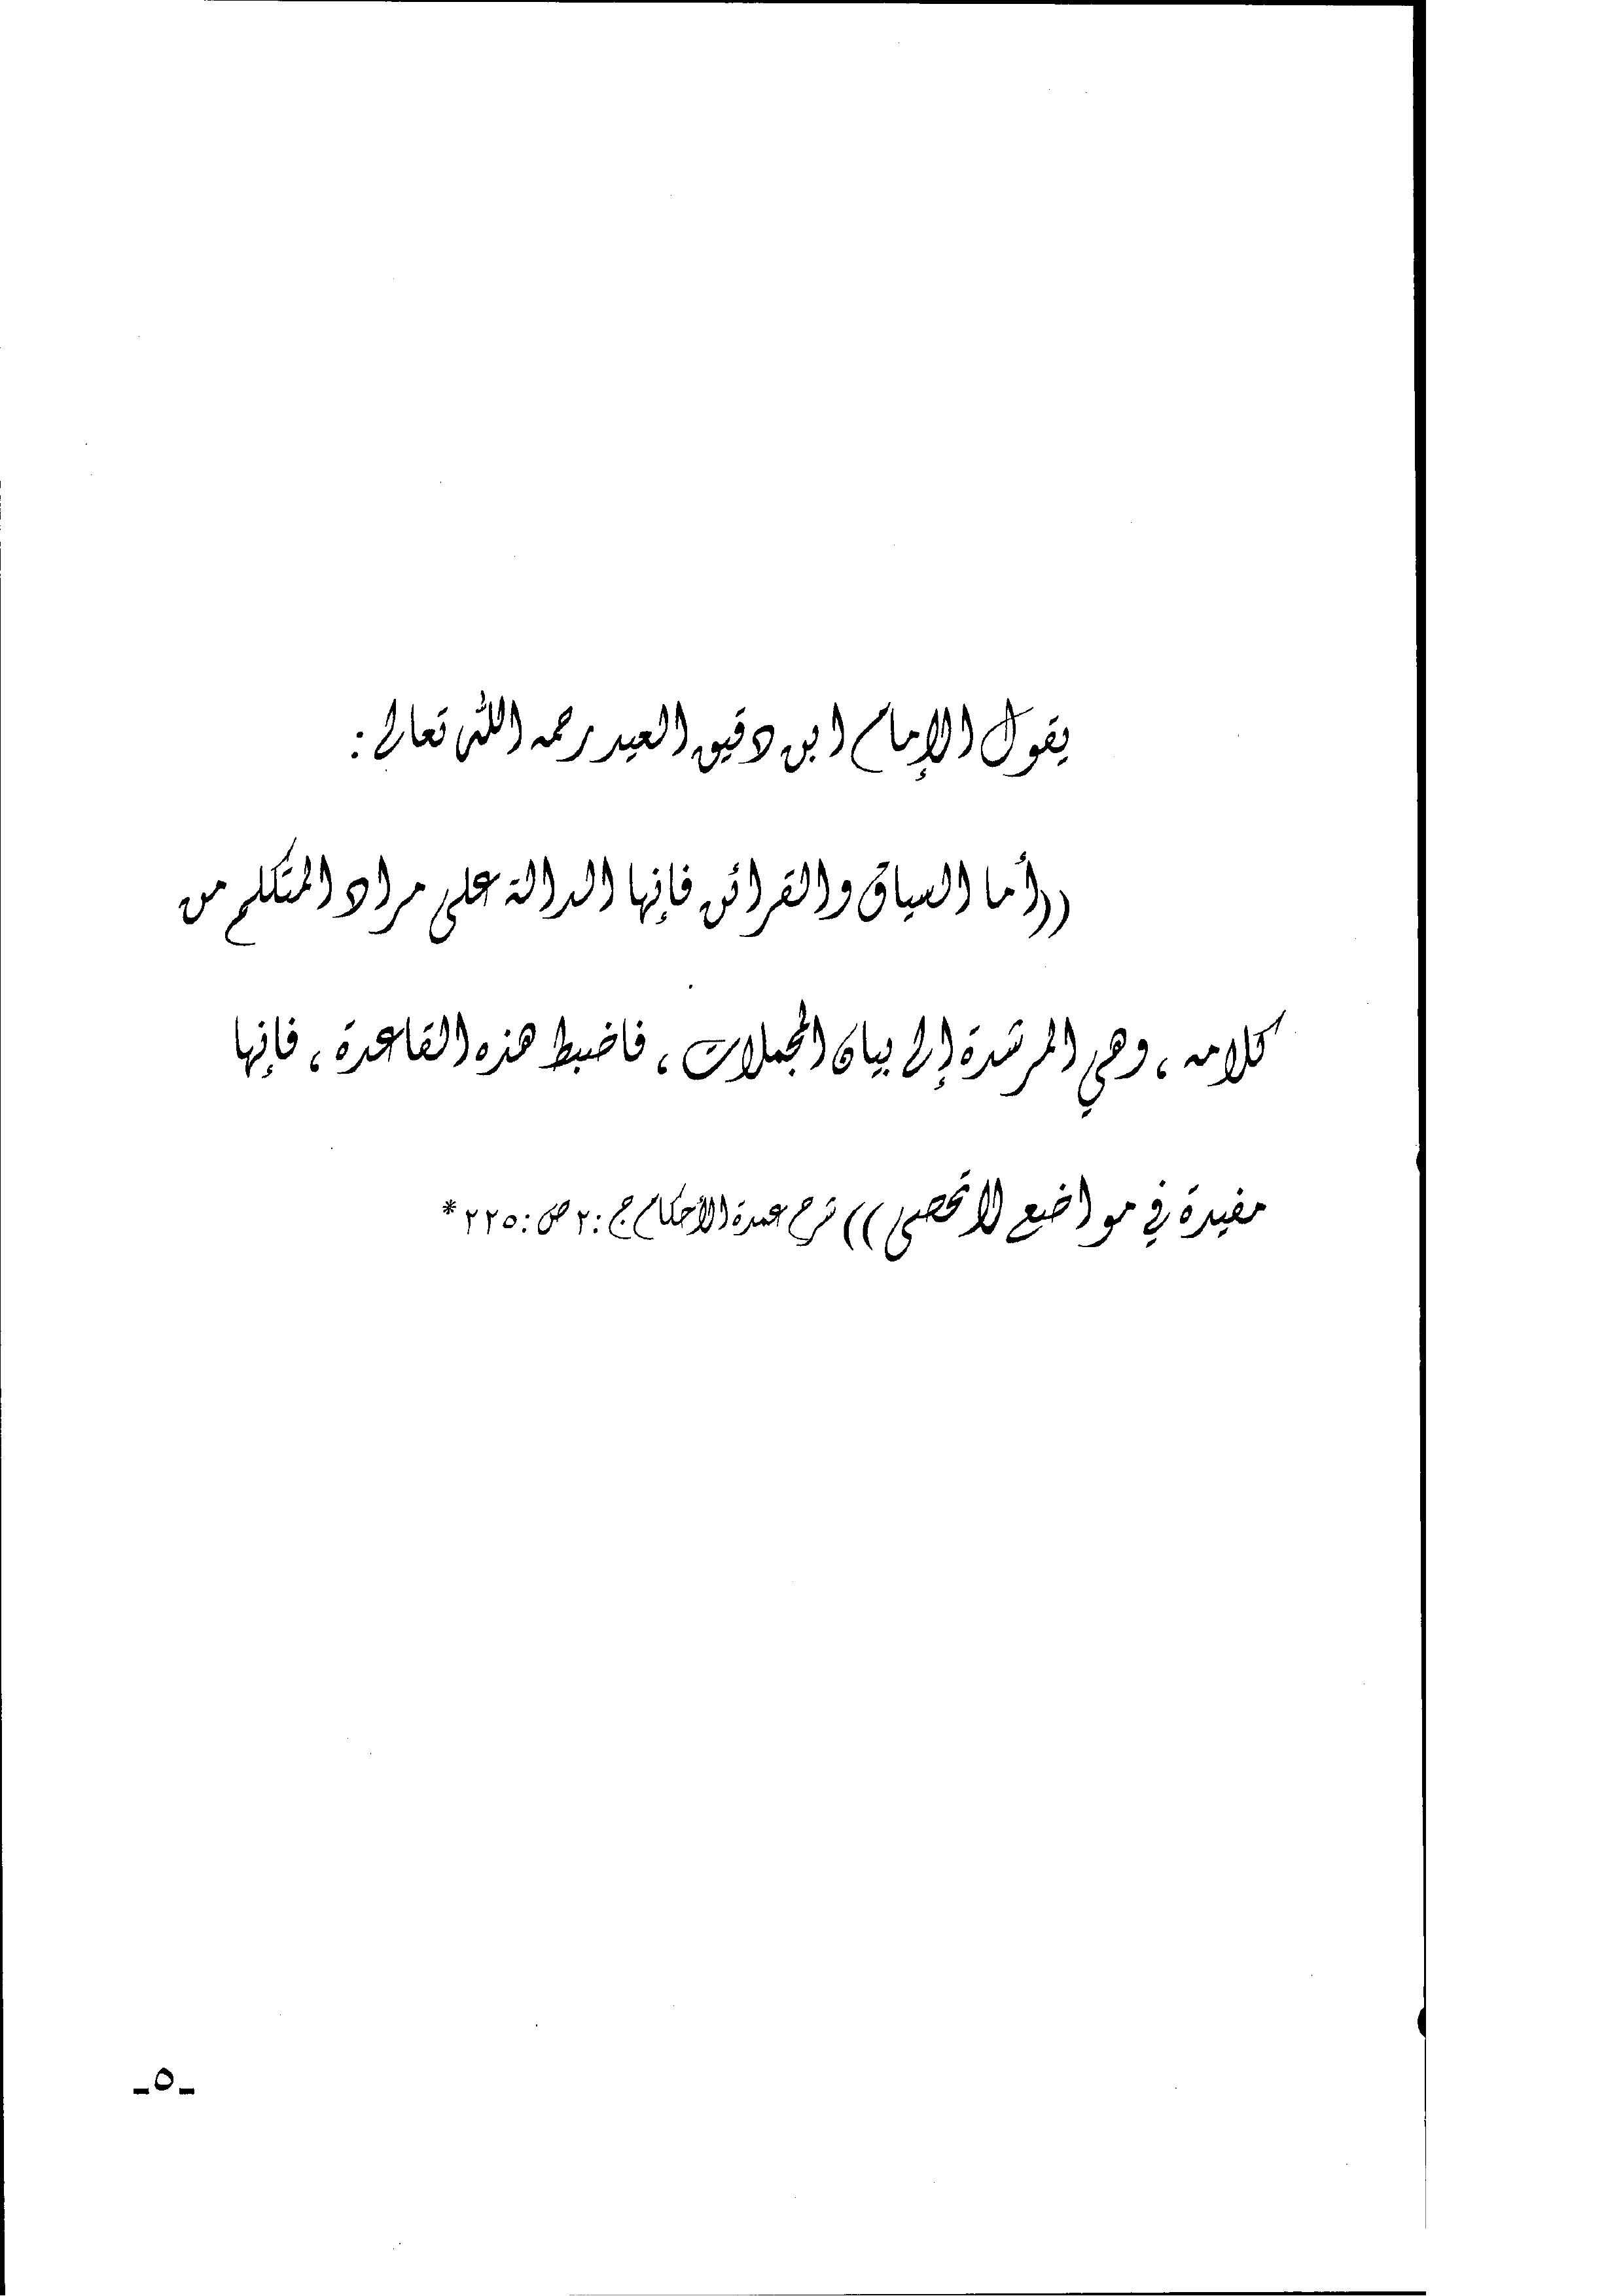 يقول الإمام ابن دقيق العيد رحمه الله تعالى :
((أما السياق والقرائن فإنها الدالة على مراد المتكلم من
كلامه ، وهي المرشدة إلى بيان المجملات ، فاضبط هذه القاعدة ، فإنها
مفيدة في مواضع لا تحصى )) شرح عمدة الأحكام ج :٢ ص :٢٢٥ *
ـ٥ـ